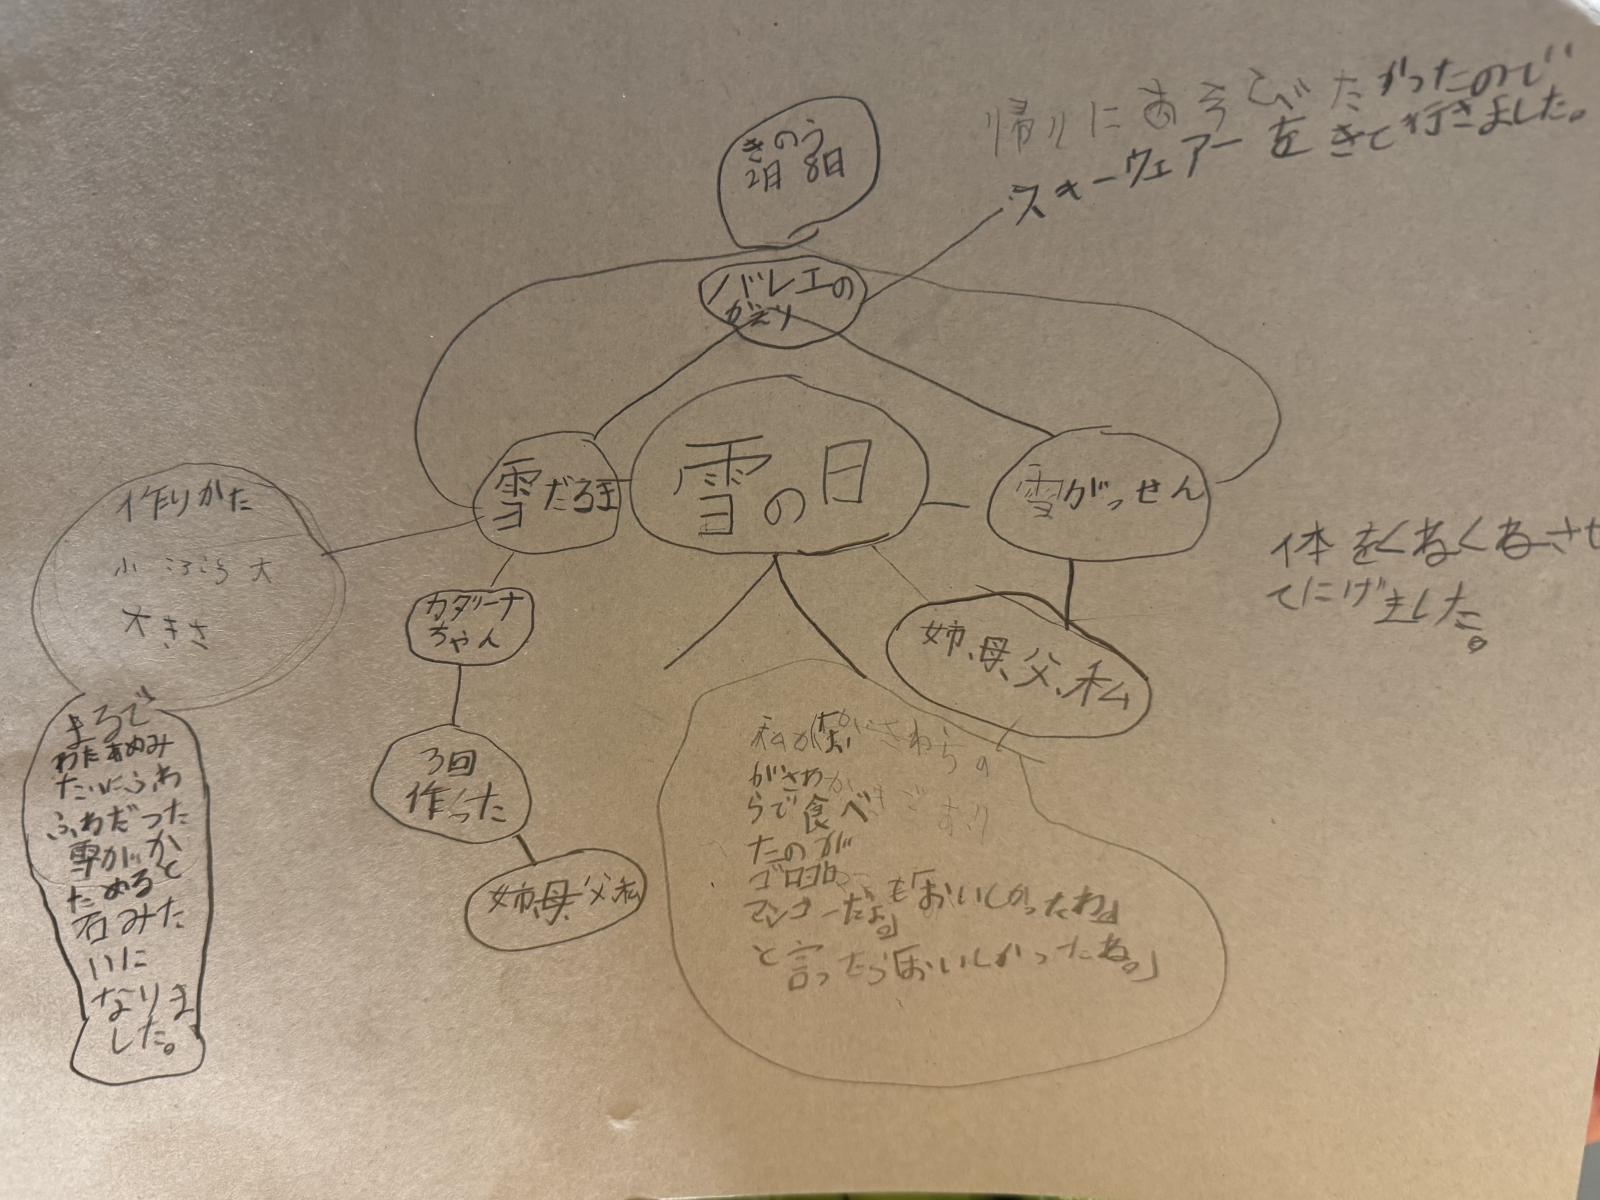 きのう
2日 8日
帰りにあそびたかったので
スキーウェアーをきて行きました。
バレエの
がえり
雪の日
雪だるま
雪がっせん
作りかた
小 ころころ 大
大きさ
まるで
わたあめみ
たいにふわ
ふわだった
雪がかた
ためると
石みた
いに
なりま
した。
カタリーナ
ちゃん
3回
作った
姉、母、父、私
姉、母、父、私
体をくねくねさせ
てにげました。
私が
がさわ
らで食べ
たのが
ゴロゴロ
マンゴーだよ。」も「おいしかったね」
と言ったら「おいしかったね。」